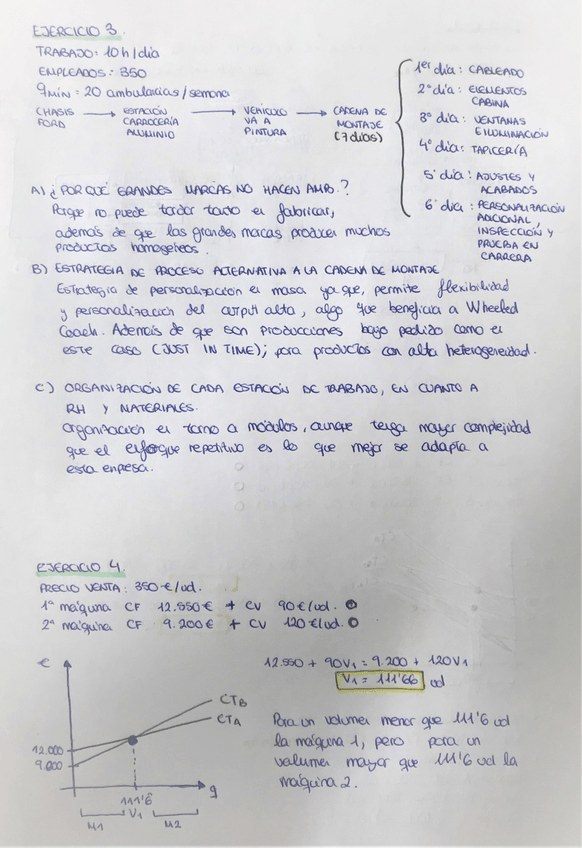 EJERCICIO 3.
TRABAJO: 10 h/dia
EMPLEADOS: 350
qmín = 20 ambulacias/semana
CHASIS FORD → ESTACIÓN CARROCERÍA ALUMINIO → VEHÍCULO VA A PINTURA → CADENA DE MONTAJE (7 días)
1er día: CABLEADO
2º día: ELEMENTOS CABINA
3º día: VENTANAS E ILUMINACIÓN
4º día: TAPICERÍA
5º día: AJUSTES Y ACABADOS
6º día: PERSONALIZACIÓN ADICIONAL, INSPECCIÓN Y PRUEBA EN CARRERA
A) ¿POR QUÉ GRANDES MARCAS NO HACEN AMB.?
Porque no puede tardar tanto en fabricar,
además de que las grandes marcas producen muchos
productos homogéneos.
B) ESTRATEGIA DE PROCESO ALTERNATIVA A LA CADENA DE MONTAJE
Estrategia de personalización en masa ya que, permite flexibilidad
y personalización del output alta, algo que beneficia a Wheeled
Coach. Además de que son producciones bajo pedido como en
este caso (JUST IN TIME); para productos con alta heterogeneidad.
C) ORGANIZACIÓN DE CADA ESTACIÓN DE TRABAJO, EN CUANTO A
RH Y MATERIALES.
Organización en torno a módulos, aunque tenga mayor complejidad
que el enfoque repetitivo es lo que mejor se adapta a
esta empresa.
EJERCICIO 4.
PRECIO VENTA: 350 €/ud.
1ª máquina CF 12.550 € + CV 90 €/ud.
2ª máquina CF 9.200 € + CV 120 €/ud.
€
CTB
CTA
12.000
9.000
111'6
V1
q
M1
M2
12.550 + 90V1 = 9.200 + 120V1
V1 = 111'66 ud
Para un volumen menor que 111'6 ud
la máquina 1, pero para un
volumen mayor que 111'6 ud la
máquina 2.